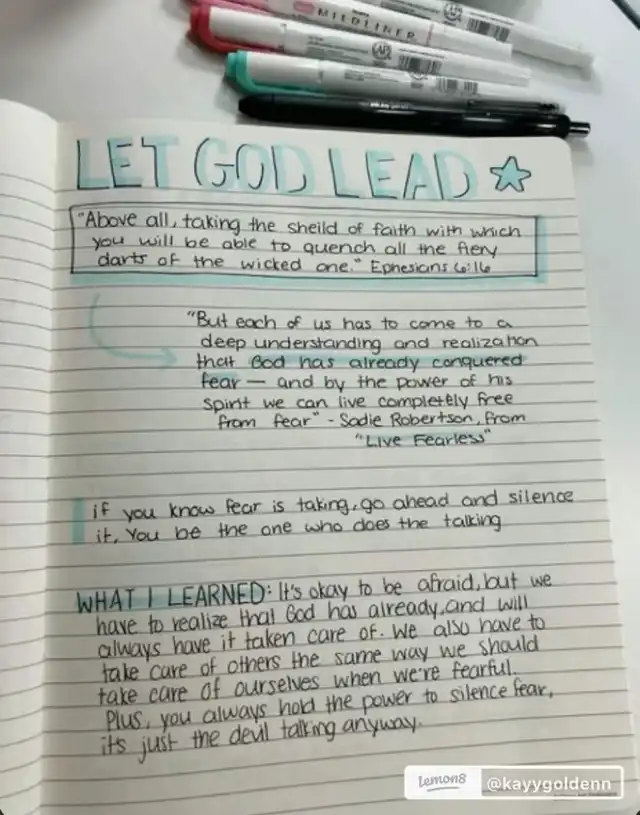 MILDLINER
LET GOD LEAD
"Above all, taking the sheild of faith with which
you will be able to quench all the fiery
darts of the wicked one." Ephesians 6:16
"But each of us has to come to a
deep understanding and realization
that God has already conquered
fear — and by the power of his
spirit we can live completely free
from fear" - Sadie Robertson, from
"Live Fearless"
if you know fear is taking, go ahead and silence
it. You be the one who does the talking
WHAT I LEARNED: It's okay to be afraid, but we
have to realize that God has already, and will
always have it taken care of. We also have to
take care of others the same way we should
take care of ourselves when we're fearful.
Plus, you always hold the power to silence fear,
it's just the devil talking anyway.
lemon8 @kayygoldenn